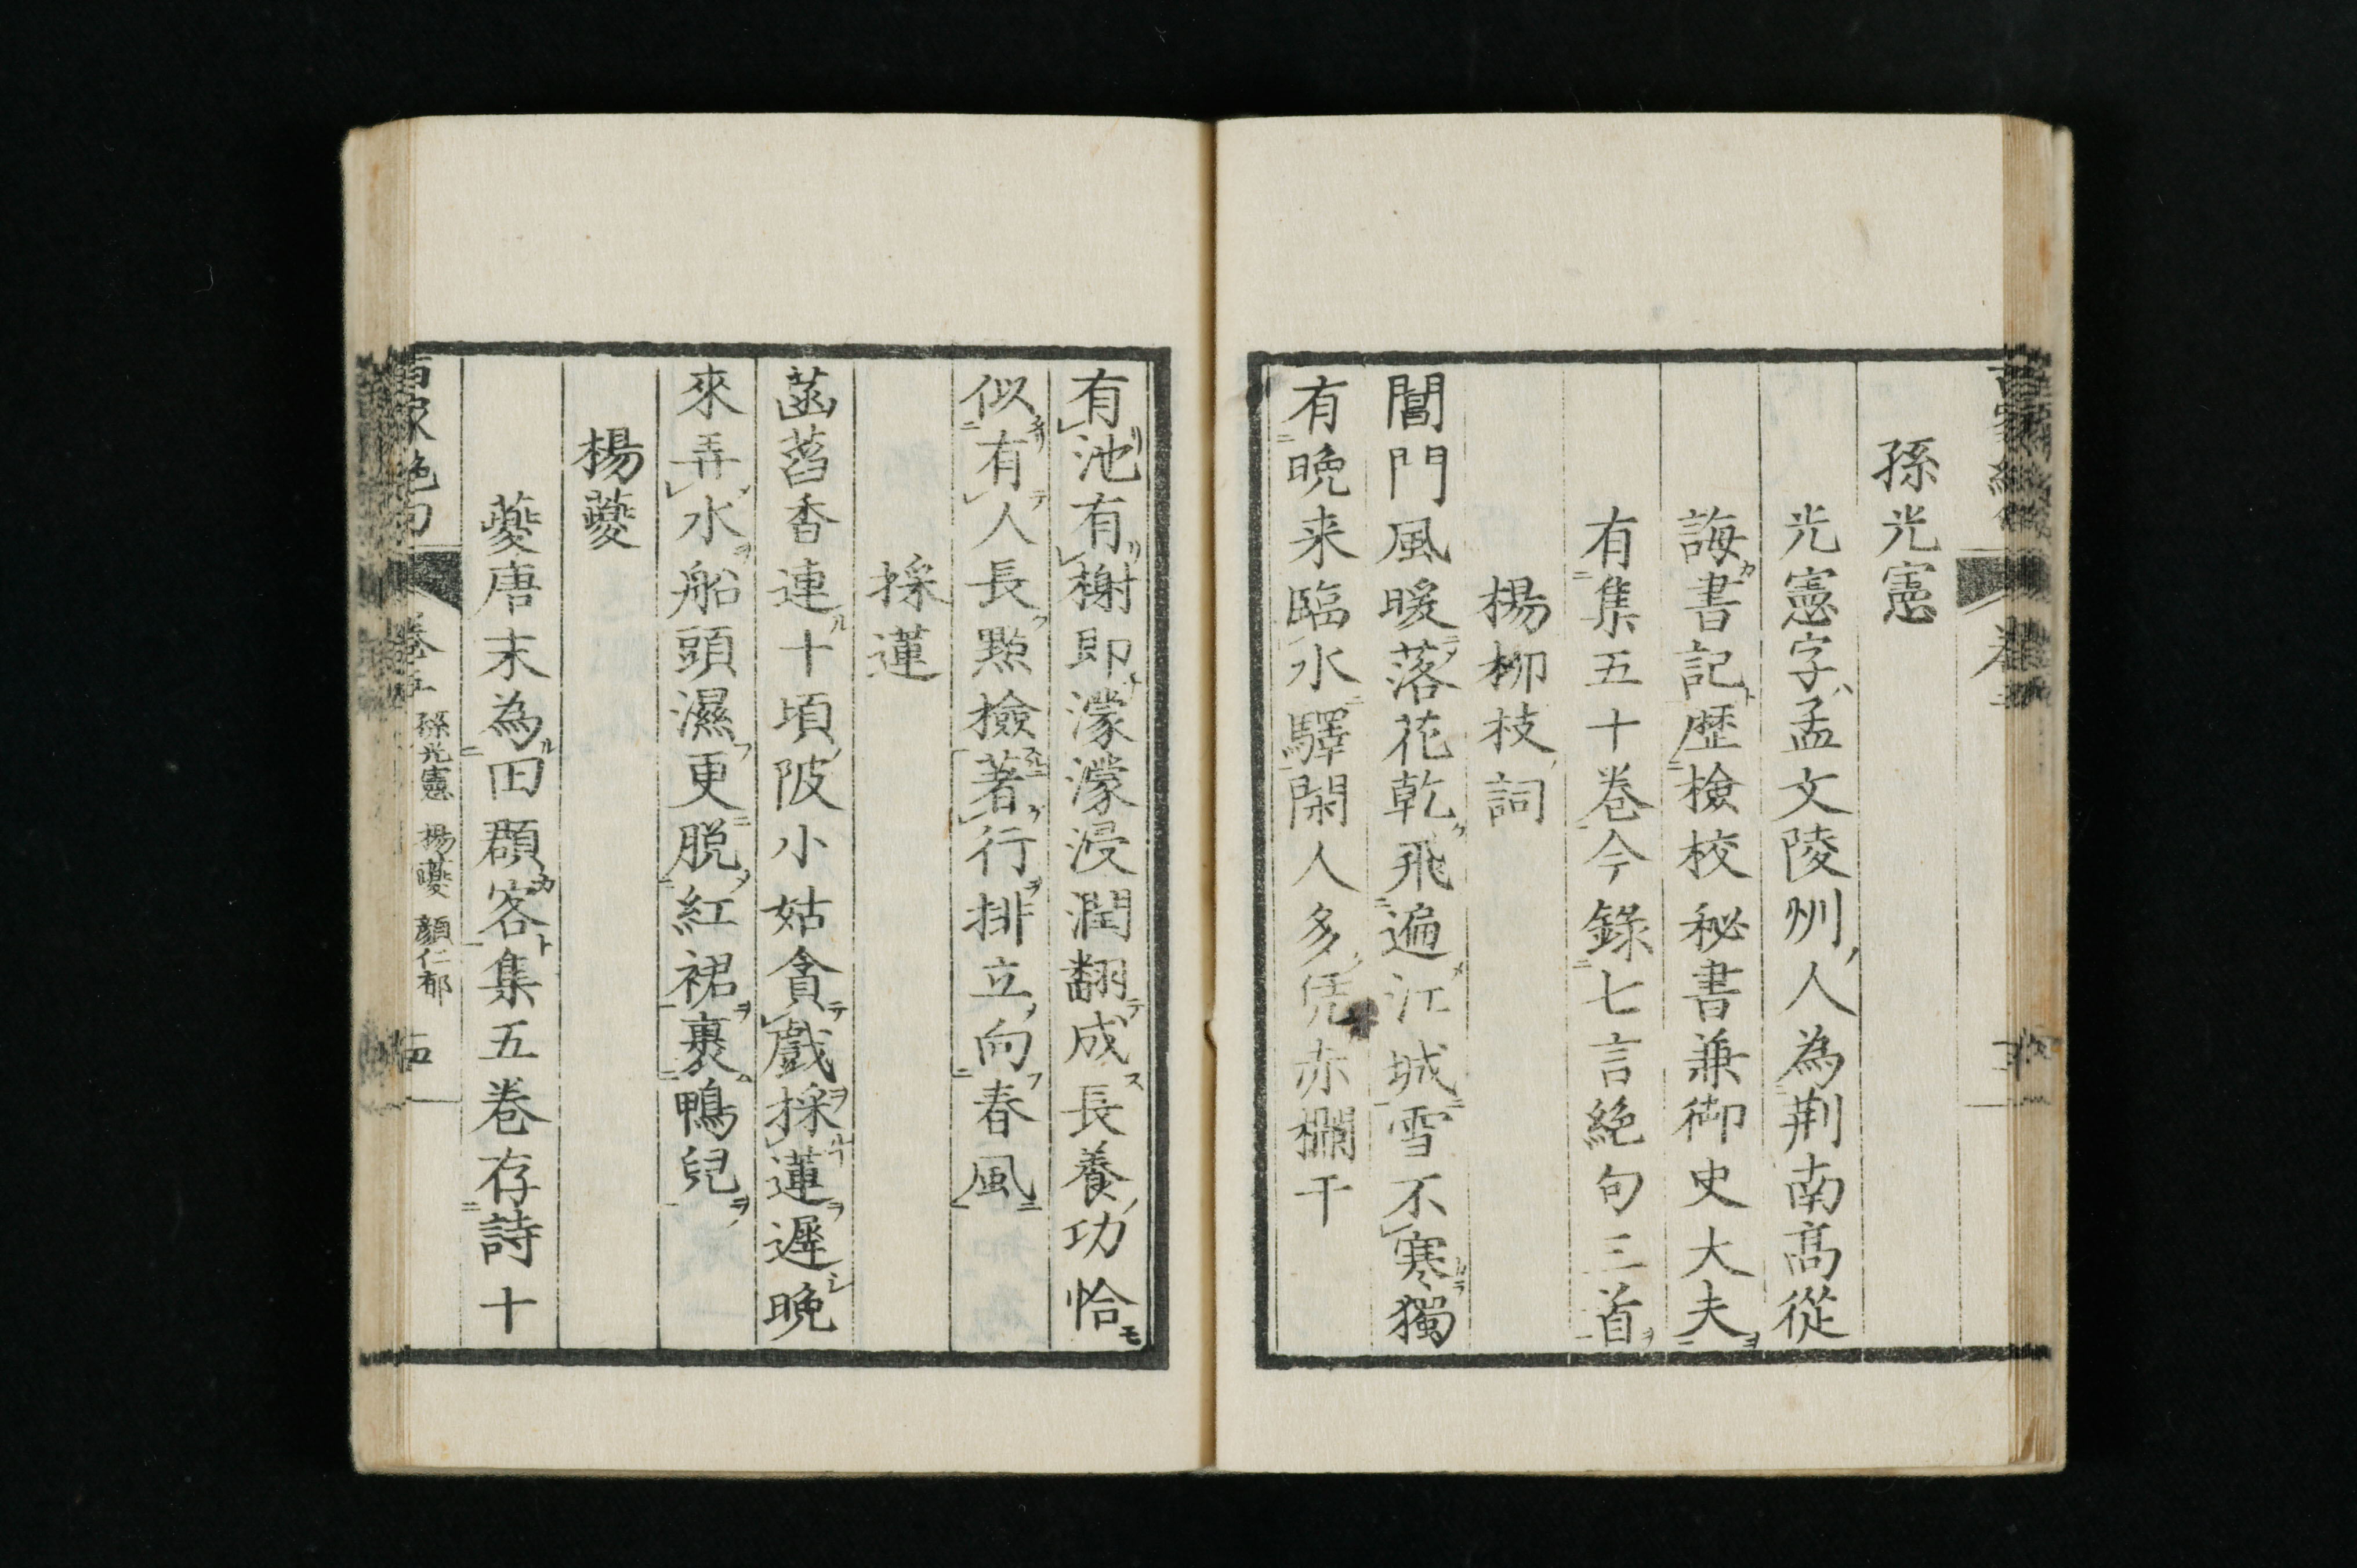 孫光憲
光憲字孟文陵州人為荆南髙從
誨書記歴檢校秘書兼御史大夫
有集五十卷今錄七言絶句三首
楊柳枝詞
閶門風暖落花乾飛遍江城雪不寒獨
有晩来臨水驛閑人多凭赤欄干
有池有榭即濛濛浸潤翻成長養功恰
似有人長㸃檢著行排立向春風
採蓮
菡萏香連十頃陂小姑貪戲採蓮遲晩
來弄水船頭濕更脱紅裙裹鴨兒
楊夔
夔唐末為田頵客集五卷存詩十
絶句
卷五
孫光憲 楊夔 顔仁郁